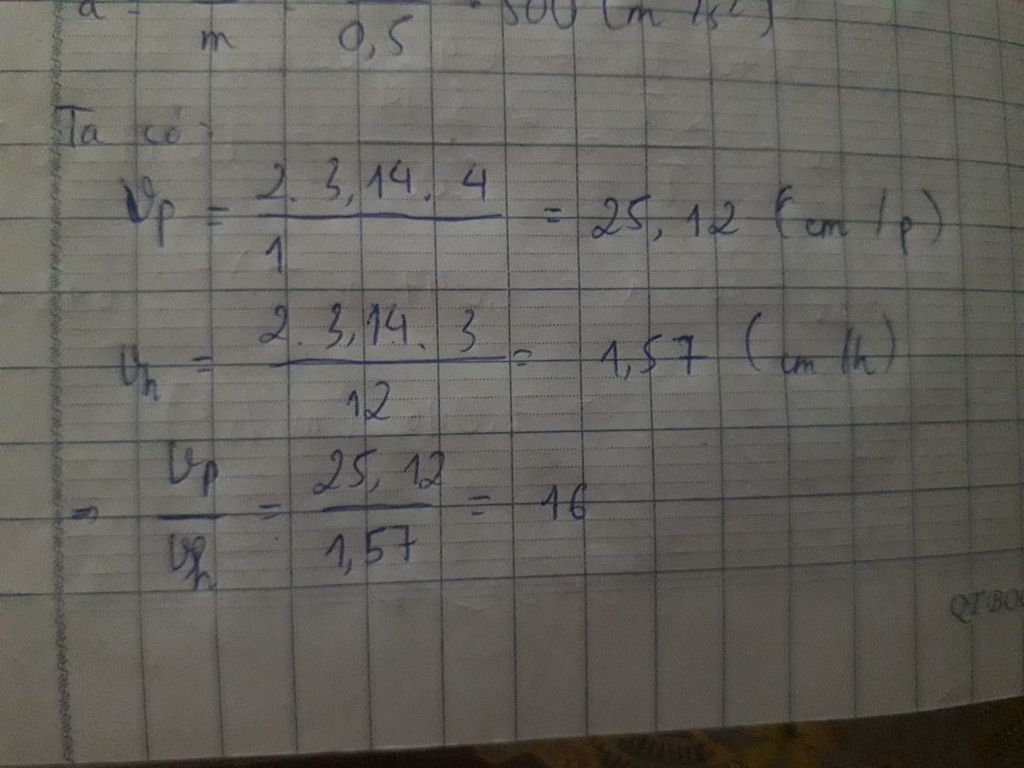 m 0,5 500 (m/s²)
Ta có:
Vp = 2. 3,14. 4 / 1 = 25,12 (cm/p)
Vh = 2. 3,14. 3 / 12 = 1,57 (cm/h)
=> Vp / Vh = 25,12 / 1,57 = 16